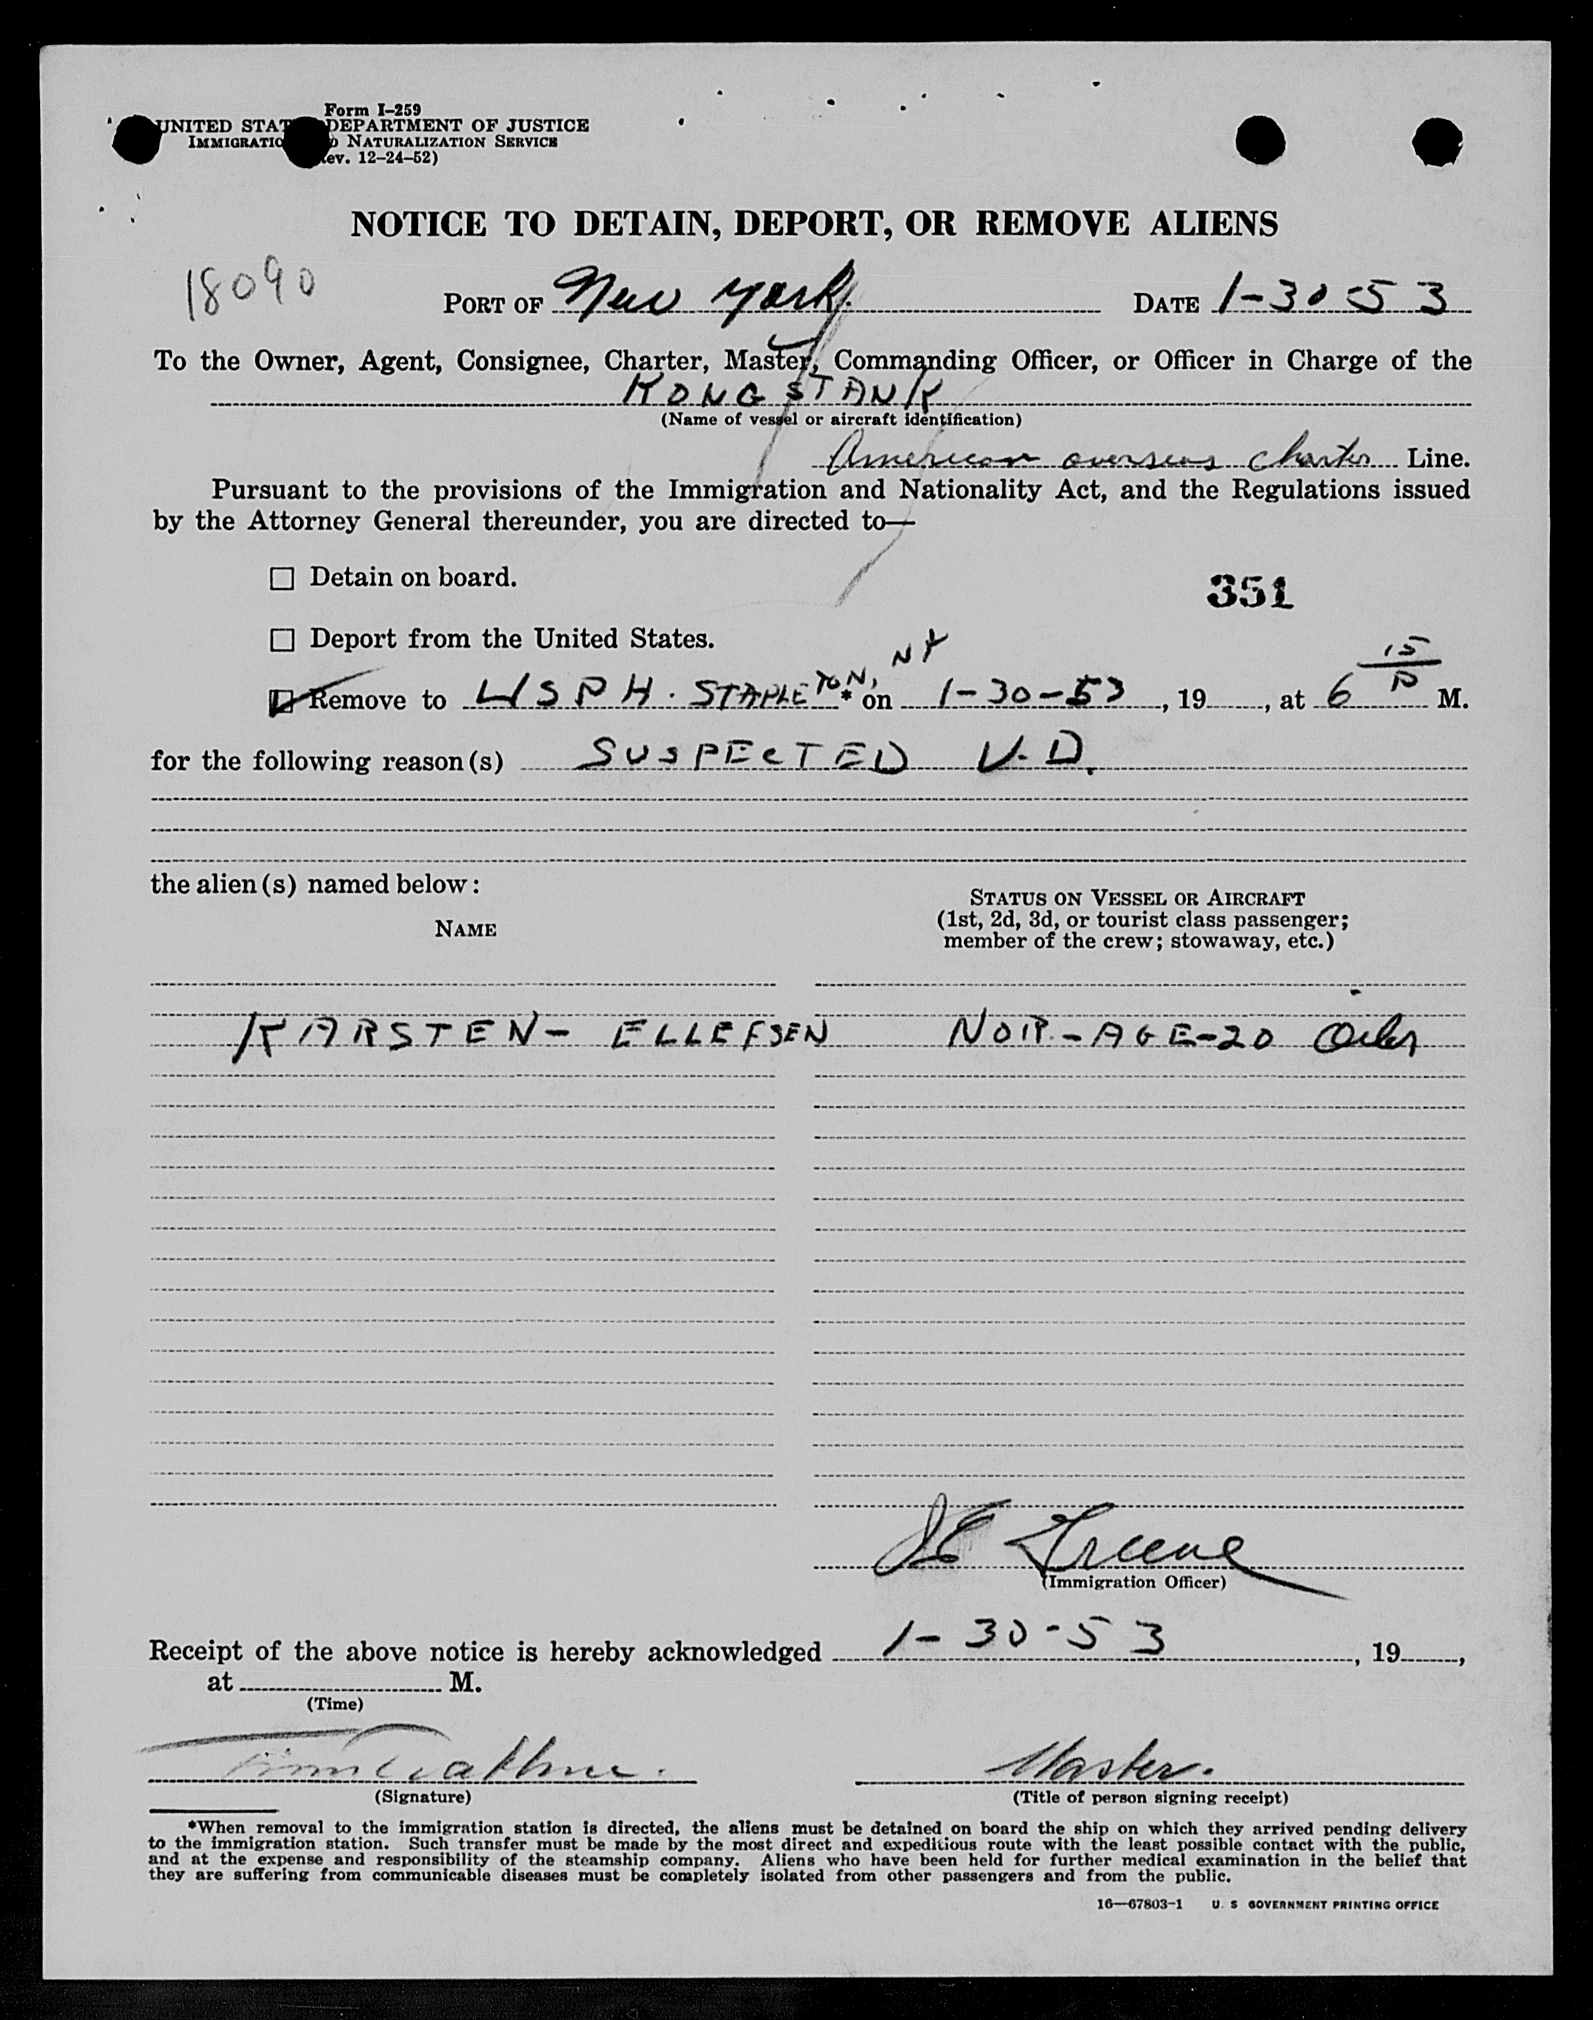 Form I-259
UNITED STAT DEPARTMENT OF JUSTICE
IMMIGRATIO NATURALIZATION SERVICE
ev. 12-24-52)
NOTICE TO DETAIN, DEPORT, OR REMOVE ALIENS
18090
PORT OF New York. DATE 1-30-53
To the Owner, Agent, Consignee, Charter, Master, Commanding Officer, or Officer in Charge of the
KONGSTANK
(Name of vessel or aircraft identification)
American overseas charter Line.
Pursuant to the provisions of the Immigration and Nationality Act, and the Regulations issued
by the Attorney General thereunder, you are directed to—
☐ Detain on board.
351
☐ Deport from the United States.
Remove to USPH. STAPLETON, NY * on 1-30-53, 19, at 6 15/P M.
for the following reason(s) SUSPECTED V.D.
the alien(s) named below:
NAME
STATUS ON VESSEL OR AIRCRAFT
(1st, 2d, 3d, or tourist class passenger;
member of the crew; stowaway, etc.)
KARSTEN- ELLEFSEN NOR.-AGE-20 Oiler
Greene
(Immigration Officer)
Receipt of the above notice is hereby acknowledged 1-30-53, 19,
at M.
(Time)
Master.
(Signature) (Title of person signing receipt)
*When removal to the immigration station is directed, the aliens must be detained on board the ship on which they arrived pending delivery
to the immigration station. Such transfer must be made by the most direct and expeditious route with the least possible contact with the public,
and at the expense and responsibility of the steamship company. Aliens who have been held for further medical examination in the belief that
they are suffering from communicable diseases must be completely isolated from other passengers and from the public.
16—67803-1 U. S GOVERNMENT PRINTING OFFICE